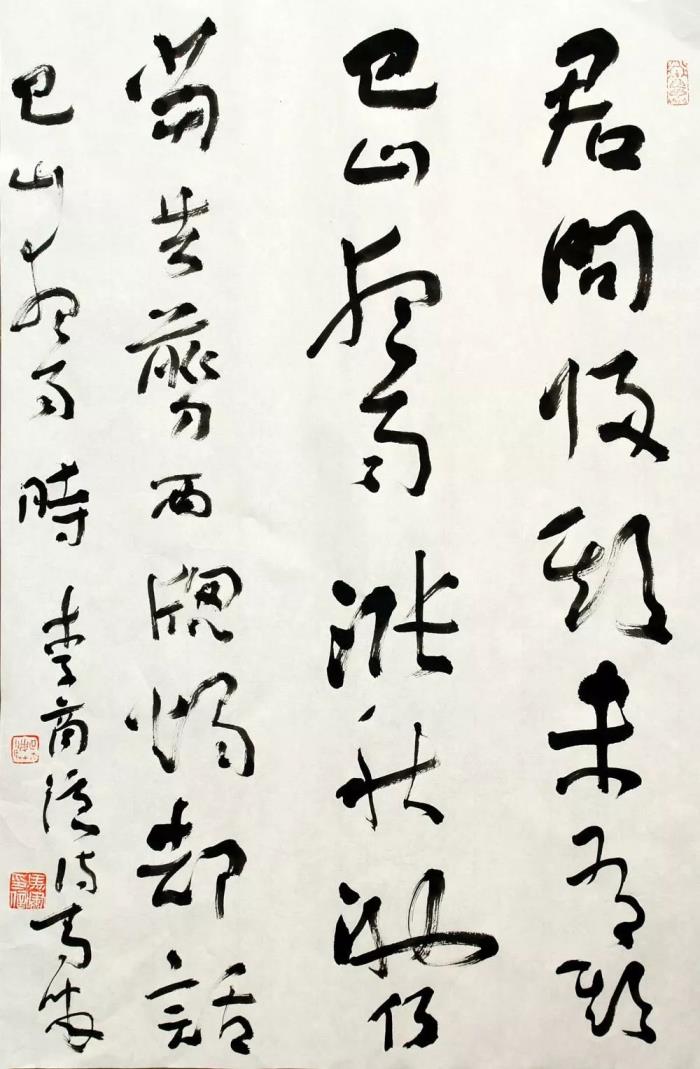 君問歸期未有期
巴山夜雨漲秋池何
當共剪西牕燭却話
巴山夜雨時 李商隱詩